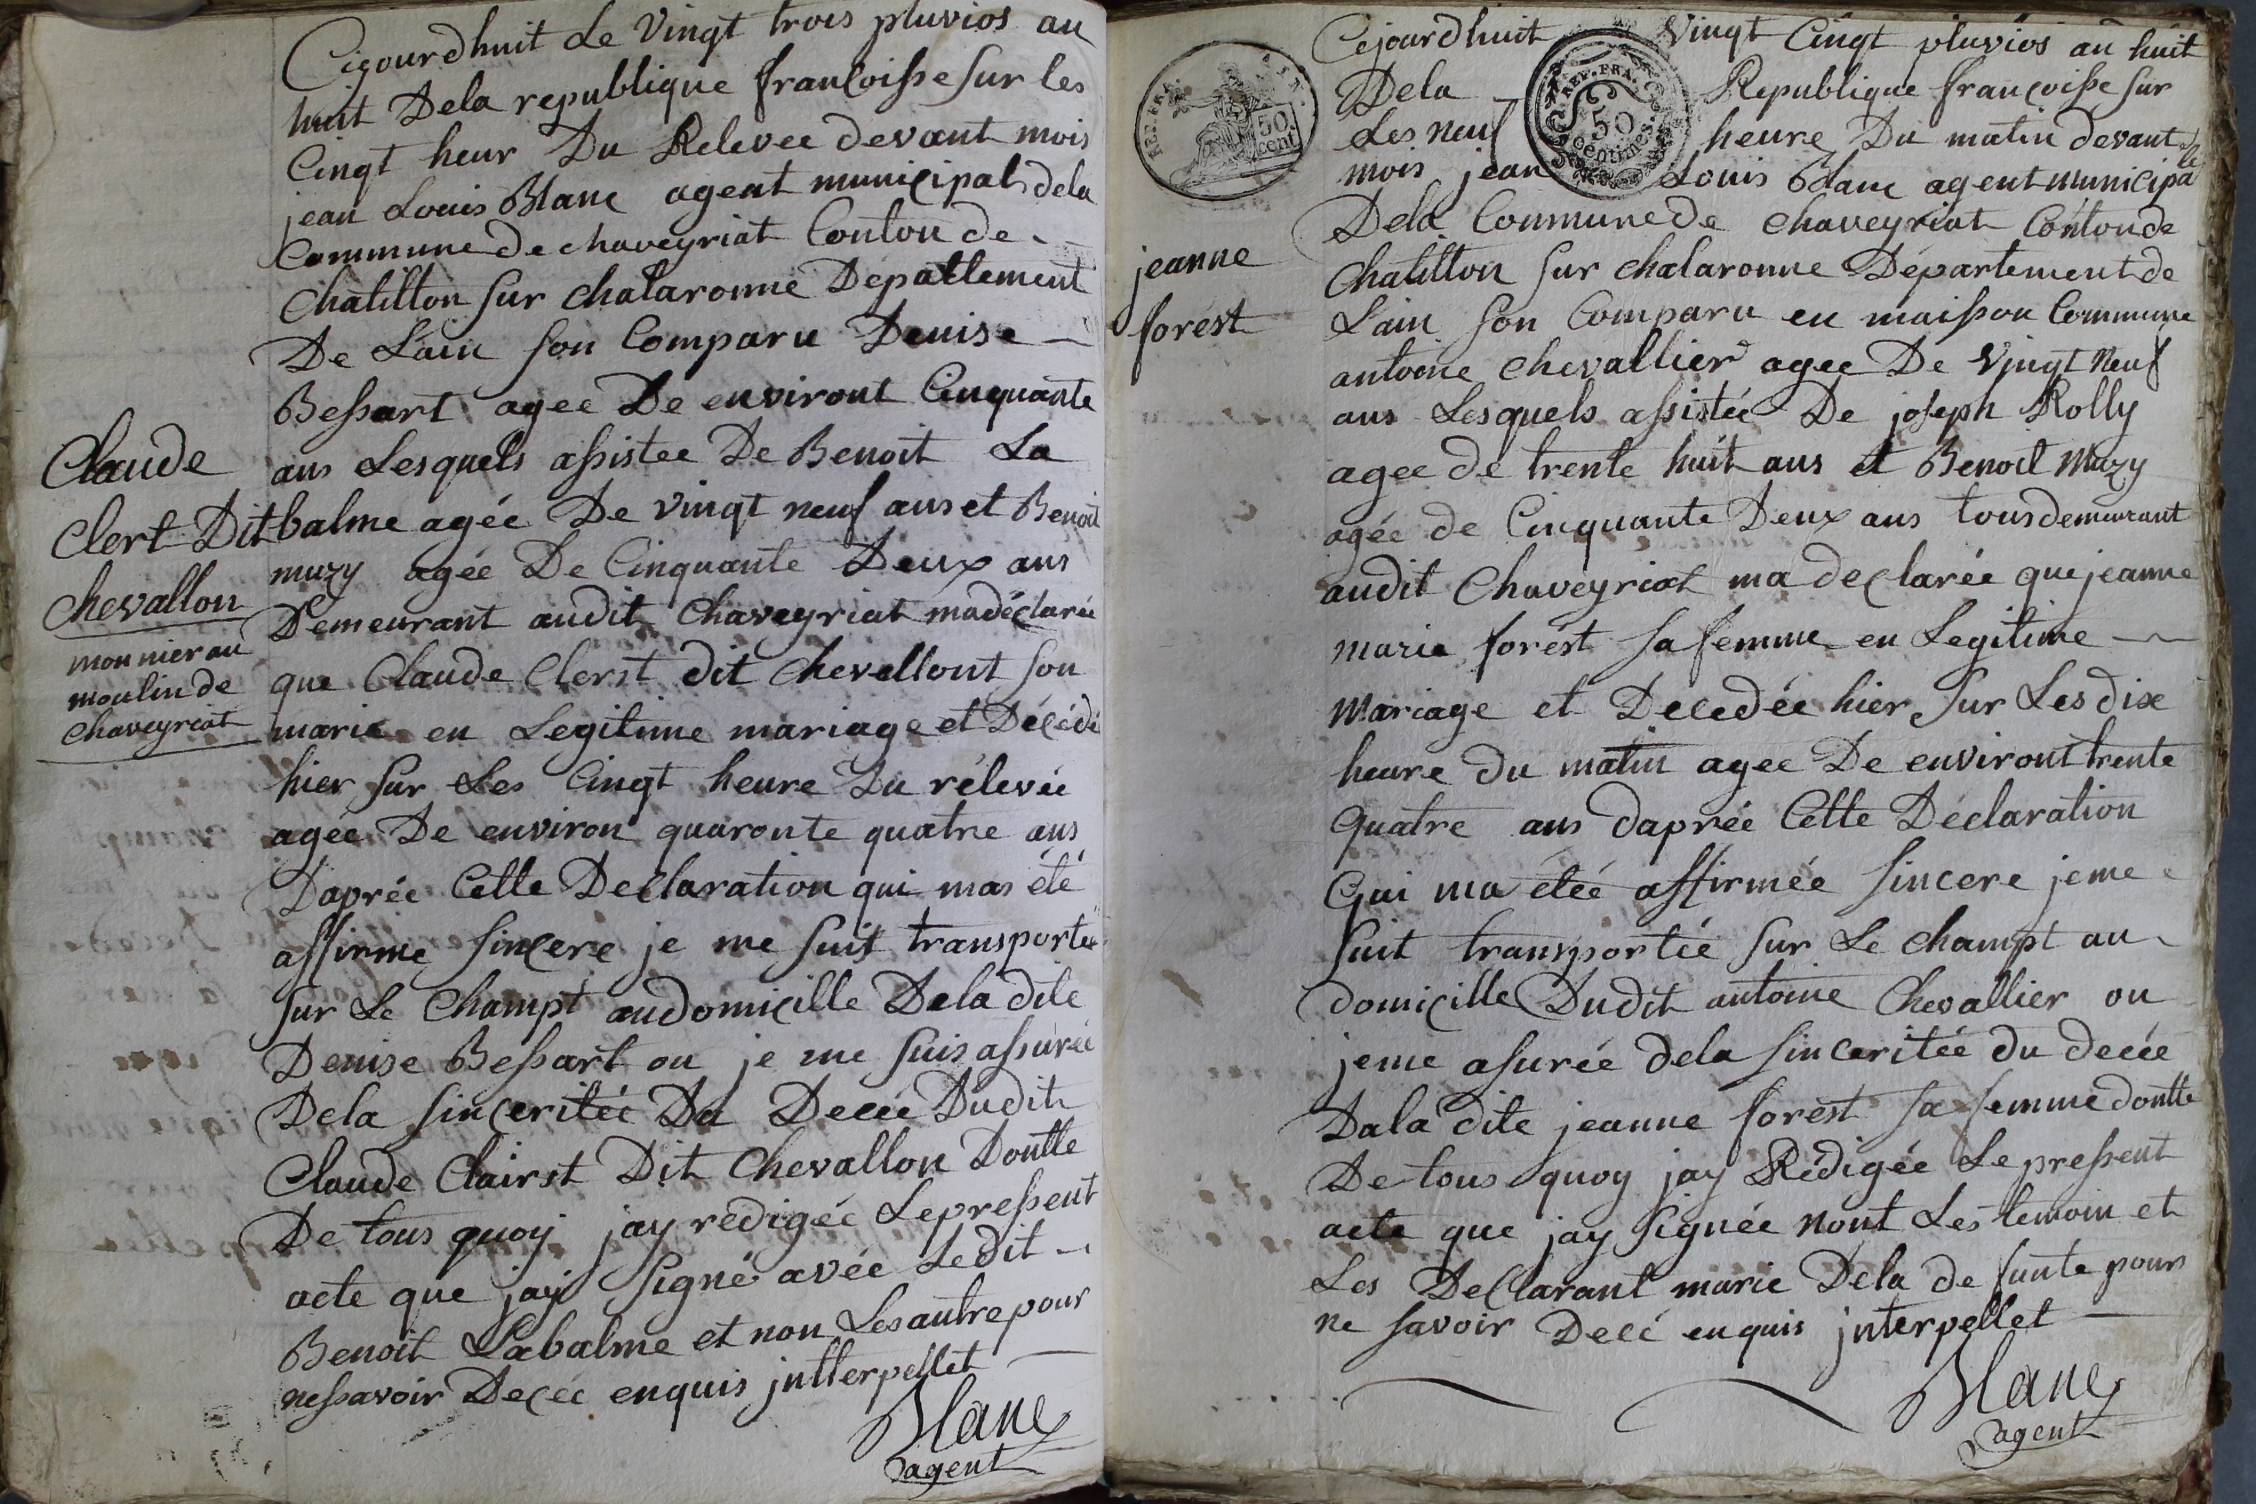 Cigourdhuit Le Vingt trois pluvios au
huit Dela republique francoisse sur les
Cinqt heur Du Relevee devant mois
jean Louis Blanc agent municipal dela
Commune de chaveyriat Conton de
Chatillon sur chalaronne Depatlement
De Lain son Comparu Denise
Bessart agee De environt Cinquante
ans Lesquels assistee De Benoit La
balme agée De vingt neuf ans et Benoit
muzy agée De Cinquante Deux ans
Demeurant audit Chaveyriat madéclarée
que Claude Clerst dit Chevellont son
marie en Legitime mariage et Décédé
hier sur Les Cinqt heure Du rélevée
agée De environ quaronte quatre ans
Daprée Cette Declaration qui mas été
affirme sincere je me suis transportée
sur Le Champt audomicille Dela dite
Denise Bessart ou je me suis assurée
Dela sinceritée Du Decée Dudit
Claude Clairst Dit Chevallon Dontte
De tous quoy jay redigée Lepressent
acte que jay Signé avée Ledit
Benoit Labalme et non Lesautre pour
nessavoir Decée enquis jntterpellet
Blanc
agent
Claude
Clert Dit
Chevallon
monnier au
moulin de
Chaveyriat
Cejourdhuit Vingt Cinqt pluvios an huit
Dela Republique francoisse sur
Les neuf heure Du matin devant
mois jean Louis Blanc agent municipal
Dela Commune de Chaveyriat Conton de
Chatillon sur chalaronne Departement de
Lain son Comparu en maisson Commune
antoine chevallier agee De Vingt neuf
ans Lesquels assistée De joseph Rolly
agee de trente huit ans et Benoit Muzy
agée de Cinquante Deux ans tous demeurant
audit Chaveyriat ma declarée que jeanne
marie forest sa femme en Legitime
Mariage et Decedée hier sur Les dix
heure du matin agee De environt trente
Quatre ans daprée Cette Declaration
Qui ma étée affirmée sincere jeme
suit transportée sur Le champt au
domicille Dudit antoine Chevallier ou
jeme asurée dela sinceritée du decée
Dala dite jeanne forest sa femme dontte
De tous quoy jay Rédigée Le pressent
acte que jay signée nont Les temoin et
Les Declarant marie Dela de funte pour
ne savoir Decé enquis jnterpellet
Blanc
agent
jeanne
forest
REP. FRA.
50
cent
REP. FRA.
50
centimes.